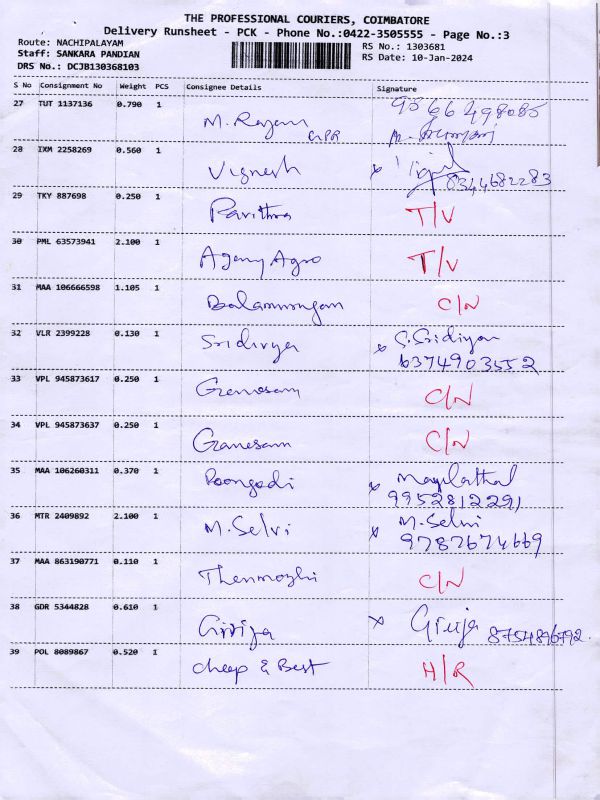 THE PROFESSIONAL COURIERS, COIMBATORE
Delivery Runsheet - PCK - Phone No.:0422-3505555 - Page No.:3
Route: NACHIPALAYAM
RS No.: 1303681
Staff: SANKARA PANDIAN
RS Date: 10-Jan-2024
DRS No.: DCJB130368103
S No Consignment No Weight PCS Consignee Details Signature
27 TUT 1137136 0.790 1
9566498085
M. Rajam
28 IXM 2258269 0.560 1
Vignesh x
8344682283
29 TKY 887698 0.250 1
Pavithra T/V
30 PML 63573941 2.100 1
Agany Agro T/V
31 MAA 106666598 1.105 1
Balamurugan C/N
32 VLR 2399228 0.130 1
Sridivya x S.Sridivya
6374903552
33 VPL 945873617 0.250 1
Ganesam C/N
34 VPL 945873637 0.250 1
Ganesam C/N
35 MAA 106260311 0.370 1
Poongodi x Mayilathal
9952812291
36 MTR 2409892 2.100 1
M. Selvi x M. Selvi
9787674669
37 MAA 863190771 0.110 1
Thenmozhi C/N
38 GDR 5344828 0.610 1
Girija x Girija 8754896792
39 POL 8089867 0.520 1
cheep & Best H/R